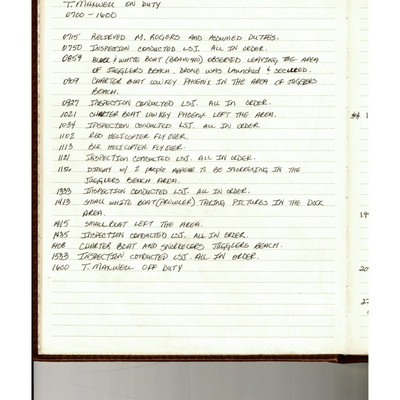 T. MAXWELL ON DUTY
0700 - 1600
0715 RELIEVED M. ROGERS AND ASSUMED DUTIES.
0750 INSPECTION CONDUCTED LSJ. ALL IN ORDER.
0859 BLACK & WHITE BOAT (BRAVO) OBSERVED LEAVING THE AREA
OF JUGGLERS BEACH. DRONE WAS LAUNCHED & SECURED.
0909 CHARTER BOAT LOWKEY PHOENIX IN THE AREA OF JUGGLERS
BEACH.
0927 INSPECTION CONDUCTED LSJ. ALL IN ORDER.
1021 CHARTER BOAT LOWKEY PHOENIX LEFT THE AREA.
1034 INSPECTION CONDUCTED LSJ. ALL IN ORDER.
1102 RED HELICOPTER FLY OVER.
1113 BLK HELICOPTER FLY OVER.
1121 INSPECTION CONDUCTED LSJ. ALL IN ORDER.
1156 DINGHY W/ 2 PEOPLE APPEAR TO BE SNORKELING IN THE
JUGGLERS BEACH AREA.
1333 INSPECTION CONDUCTED LSJ. ALL IN ORDER.
1413 SMALL WHITE BOAT (PROWLER) TAKING PICTURES IN THE DOCK
AREA.
1415 SMALL BOAT LEFT THE AREA.
1435 INSPECTION CONDUCTED LSJ. ALL IN ORDER.
CHARTER BOAT AND SNORKELERS JUGGLERS BEACH.
1533 INSPECTION CONDUCTED LSJ. ALL IN ORDER.
1600 T. MAXWELL OFF DUTY